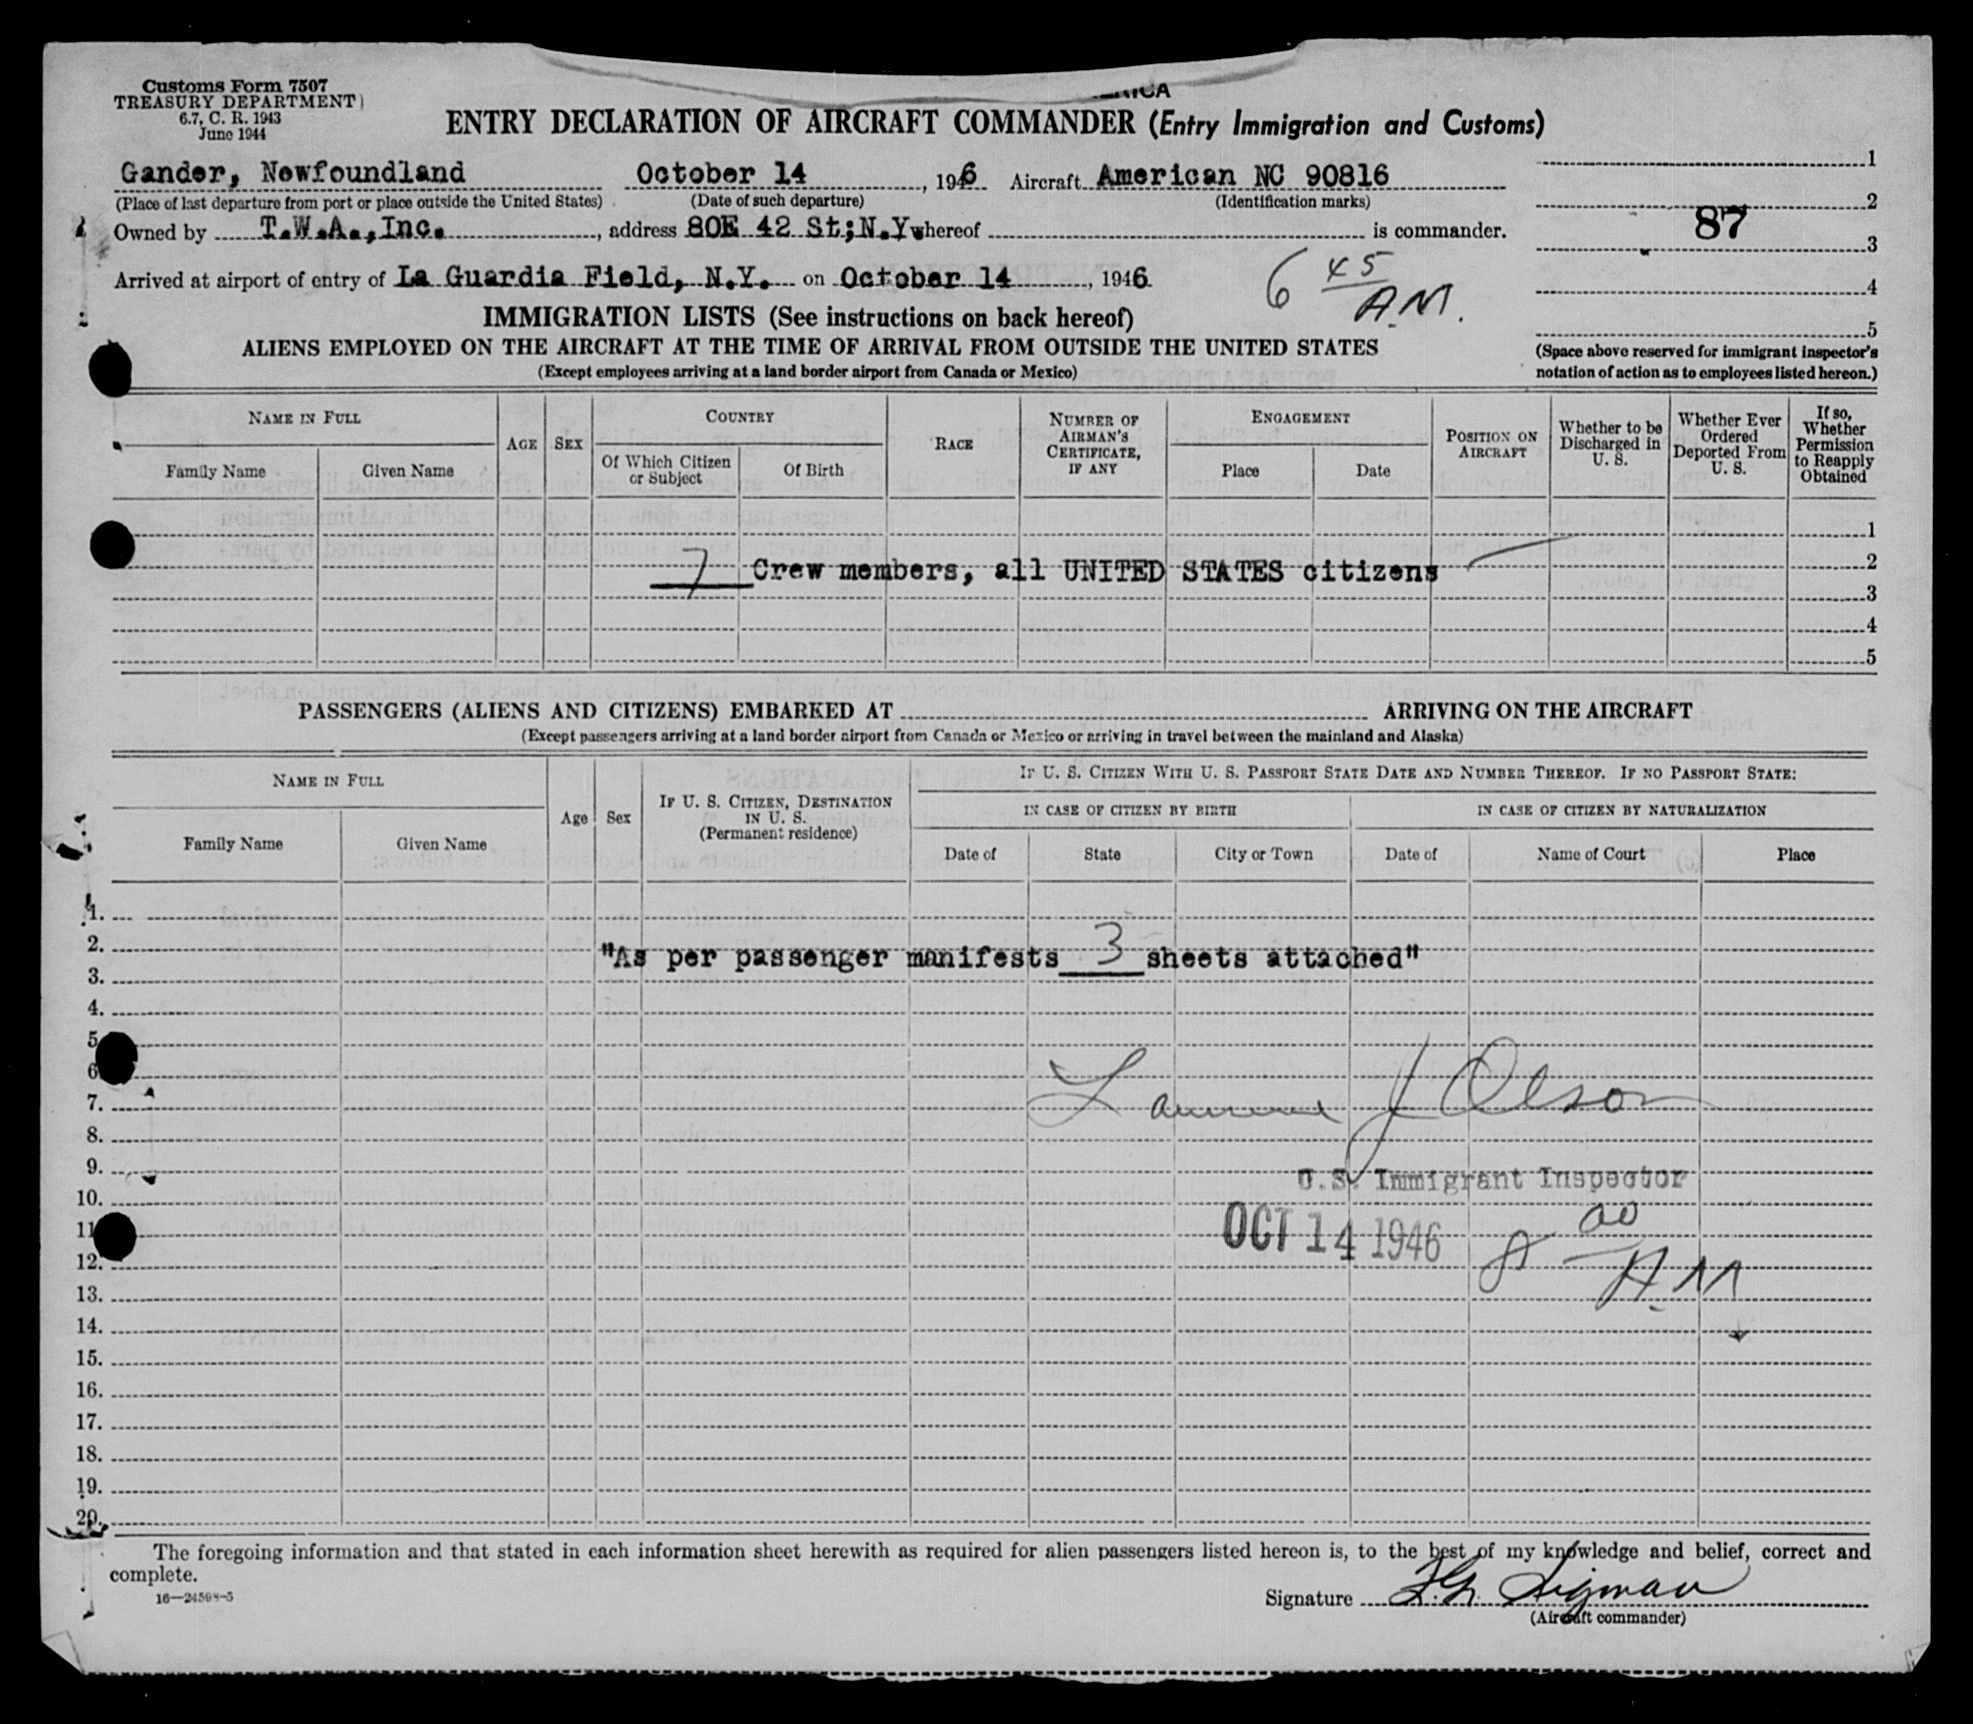 Customs Form 7507
TREASURY DEPARTMENT
6.7, C. R. 1943
June 1944
ENTRY DECLARATION OF AIRCRAFT COMMANDER (Entry Immigration and Customs)
Gander, Newfoundland October 14, 1946 Aircraft American NC 90816
(Place of last departure from port or place outside the United States) (Date of such departure) (Identification marks)
Owned by T.W.A., Inc., address 80E 42 St; N.Y. whereof is commander.
Arrived at airport of entry of La Guardia Field, N.Y. on October 14, 1946.
6 45 A.M.
1
2
87
3
4
5
(Space above reserved for immigrant inspector's
notation of action as to employees listed hereon.)
IMMIGRATION LISTS (See instructions on back hereof)
ALIENS EMPLOYED ON THE AIRCRAFT AT THE TIME OF ARRIVAL FROM OUTSIDE THE UNITED STATES
(Except employees arriving at a land border airport from Canada or Mexico)
NAME IN FULL
Family Name
Given Name
AGE
SEX
COUNTRY
Of Which Citizen
or Subject
Of Birth
RACE
NUMBER OF
AIRMAN'S
CERTIFICATE,
IF ANY
ENGAGEMENT
Place
Date
POSITION ON
AIRCRAFT
Whether to be
Discharged in
U. S.
Whether Ever
Ordered
Deported From
U. S.
If so,
Whether
Permission
to Reapply
Obtained
1
2
7 Crew members, all UNITED STATES citizens
3
4
5
PASSENGERS (ALIENS AND CITIZENS) EMBARKED AT ARRIVING ON THE AIRCRAFT
(Except passengers arriving at a land border airport from Canada or Mexico or arriving in travel between the mainland and Alaska)
NAME IN FULL
Family Name
Given Name
Age
Sex
IF U. S. CITIZEN, DESTINATION
IN U. S.
(Permanent residence)
IF U. S. CITIZEN WITH U. S. PASSPORT STATE DATE AND NUMBER THEREOF. IF NO PASSPORT STATE:
IN CASE OF CITIZEN BY BIRTH
IN CASE OF CITIZEN BY NATURALIZATION
Date of
State
City or Town
Date of
Name of Court
Place
1.
2.
"As per passenger manifests 3 sheets attached"
3.
4.
5
6
7.
Lawrence J Olson
8.
9.
U.S. Immigrant Inspector
10.
11
OCT 14 1946 8 00 A.M
12.
13.
14.
15.
16.
17.
18.
19.
20.
The foregoing information and that stated in each information sheet herewith as required for alien passengers listed hereon is, to the best of my knowledge and belief, correct and
complete.
16—24598-5
Signature Sigman
(Aircraft commander)